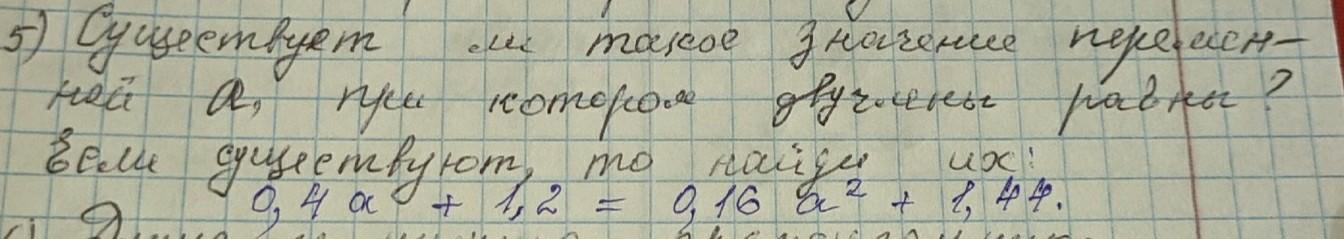 5) Существует ли такое значение перемен-
ной a, при котором двучлены равны?
Если существуют, то найди их:
0,4a + 1,2 = 0,16a² + 1,44.